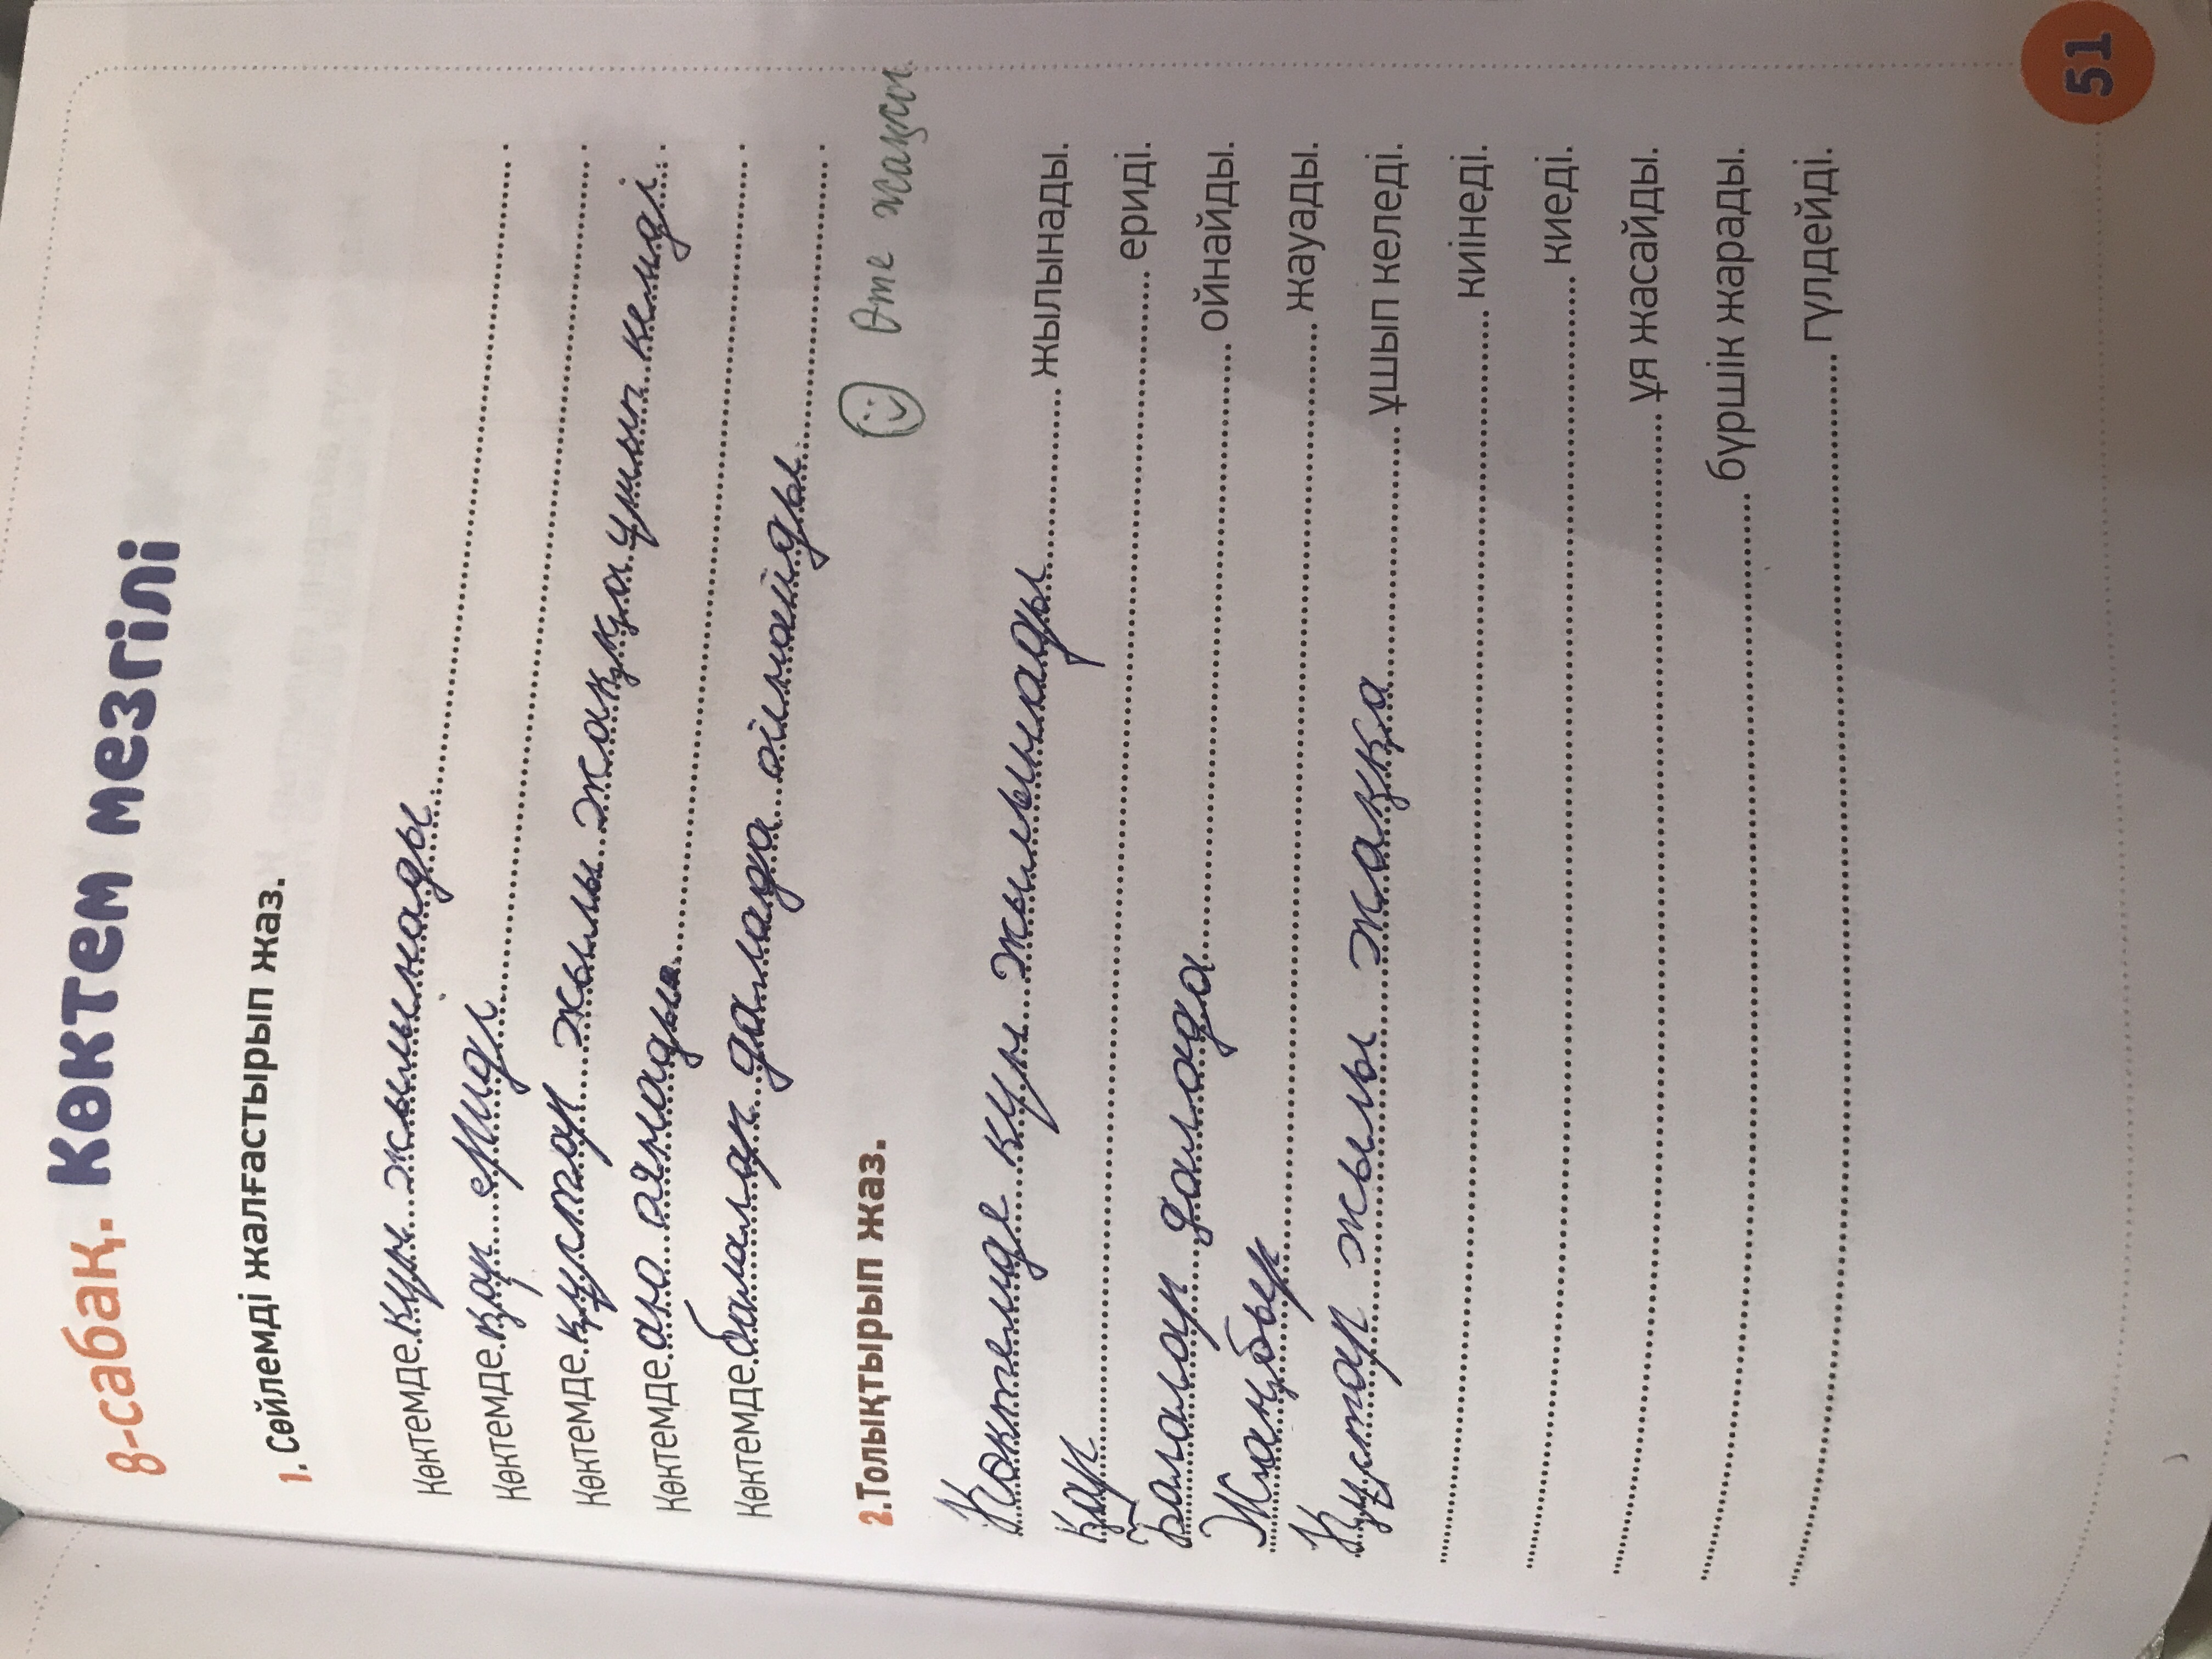 8-сабақ. Көктем мезгілі
1. Сөйлемді жалғастырып жаз.
Көктемде күн жылынады
Көктемде қар ериді
Көктемде құстар жылы жаққа ұшып келді.
Көктемде аю аянады.
Көктемде балалар далада ойнайды.
Өте жақсы
2.Толықтырып жаз.
Көктемде күн жылынады жылынады.
Қар ериді.
Балалар далада ойнайды.
Жаңбыр жауады.
Құстар жылы жаққа ұшып келеді.
киінеді.
киеді.
ұя жасайды.
бүршік жарады.
гүлдейді.
51